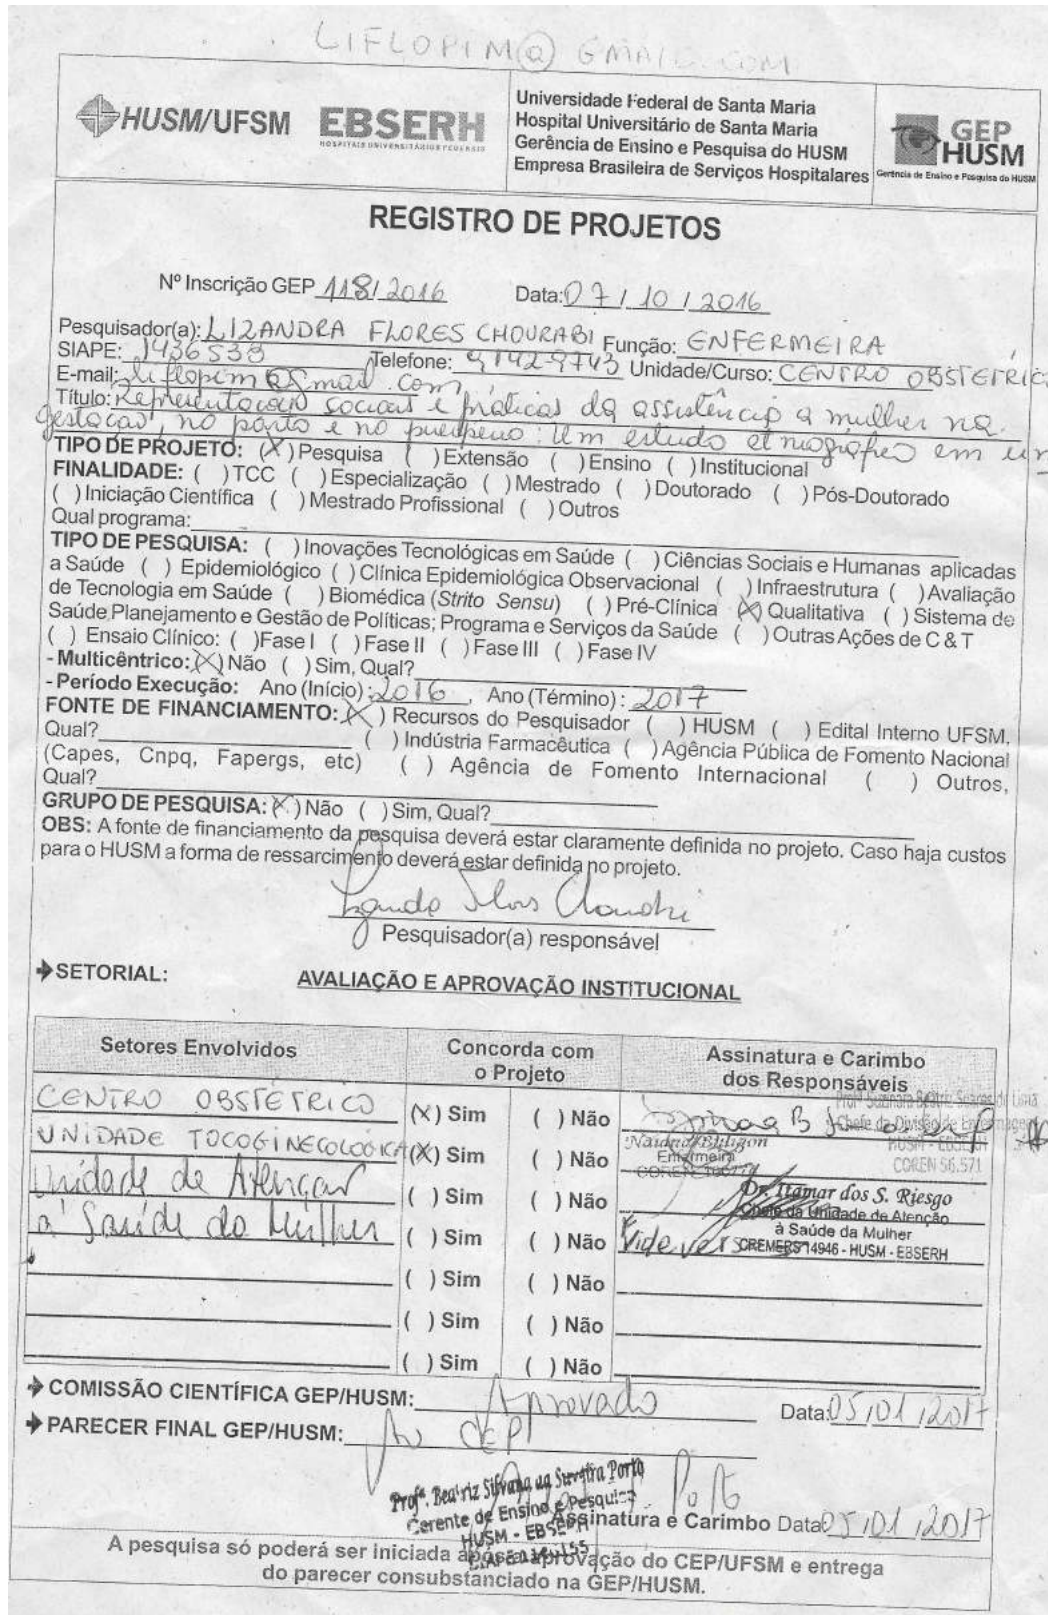 LIFLOPIM@GMAIL.COM
HUSM/UFSM
EBSERH
HOSPITAIS UNIVERSITÁRIOS FEDERAIS
Universidade Federal de Santa Maria
Hospital Universitário de Santa Maria
Gerência de Ensino e Pesquisa do HUSM
Empresa Brasileira de Serviços Hospitalares
GEP
HUSM
Gerência de Ensino e Pesquisa do HUSM
REGISTRO DE PROJETOS
Nº Inscrição GEP 118/2016 Data: 07/10/2016
Pesquisador(a): LIZANDRA FLORES CHOURABI Função: ENFERMEIRA
SIAPE: 1436538 Telefone: 91429743 Unidade/Curso: CENTRO OBSTETRICO
E-mail: liflopim@gmail.com
Título: Representações sociais e práticas da assistência a mulher na
gestação, no parto e no puerpério: Um estudo etnografico em um
TIPO DE PROJETO: (X) Pesquisa ( ) Extensão ( ) Ensino ( ) Institucional
FINALIDADE: ( ) TCC ( ) Especialização ( ) Mestrado ( ) Doutorado ( ) Pós-Doutorado
( ) Iniciação Científica ( ) Mestrado Profissional ( ) Outros
Qual programa:
TIPO DE PESQUISA: ( ) Inovações Tecnológicas em Saúde ( ) Ciências Sociais e Humanas aplicadas
a Saúde ( ) Epidemiológico ( ) Clínica Epidemiológica Observacional ( ) Infraestrutura ( ) Avaliação
de Tecnologia em Saúde ( ) Biomédica (Strito Sensu) ( ) Pré-Clínica (X) Qualitativa ( ) Sistema de
Saúde Planejamento e Gestão de Políticas; Programa e Serviços da Saúde ( ) Outras Ações de C & T
( ) Ensaio Clínico: ( ) Fase I ( ) Fase II ( ) Fase III ( ) Fase IV
- Multicêntrico: (X) Não ( ) Sim, Qual?
- Período Execução: Ano (Início): 2016, Ano (Término): 2017
FONTE DE FINANCIAMENTO: (X) Recursos do Pesquisador ( ) HUSM ( ) Edital Interno UFSM,
Qual? ( ) Indústria Farmacêutica ( ) Agência Pública de Fomento Nacional
(Capes, Cnpq, Fapergs, etc) ( ) Agência de Fomento Internacional ( ) Outros,
Qual?
GRUPO DE PESQUISA: (X) Não ( ) Sim, Qual?
OBS: A fonte de financiamento da pesquisa deverá estar claramente definida no projeto. Caso haja custos
para o HUSM a forma de ressarcimento deverá estar definida no projeto.
Pesquisador(a) responsável
SETORIAL: AVALIAÇÃO E APROVAÇÃO INSTITUCIONAL
Setores Envolvidos Concorda com o Projeto Assinatura e Carimbo dos Responsáveis
CENTRO OBSTETRICO (X) Sim ( ) Não
Profª Suzinara Beatriz Soares de Lima
Chefe da Divisão de Enfermagem
HUSM - EBSERH
COREN 56.571
UNIDADE TOCOGINECOLÓGICA (X) Sim ( ) Não
Enfermeira
Unidade de Atenção ( ) Sim ( ) Não
Dr. Itamar dos S. Riesgo
Chefe da Unidade de Atenção
à Saúde da Mulher
CREMERS 14946 - HUSM - EBSERH
à Saúde da Mulher ( ) Sim ( ) Não Vide verso
( ) Sim ( ) Não
( ) Sim ( ) Não
( ) Sim ( ) Não
COMISSÃO CIENTÍFICA GEP/HUSM: Aprovado Data: 05/01/2017
PARECER FINAL GEP/HUSM: Ao CEP
Gerente de Ensino e Pesquisa
HUSM - EBSERH
Assinatura e Carimbo Data 05/01/2017
A pesquisa só poderá ser iniciada após a aprovação do CEP/UFSM e entrega
do parecer consubstanciado na GEP/HUSM.